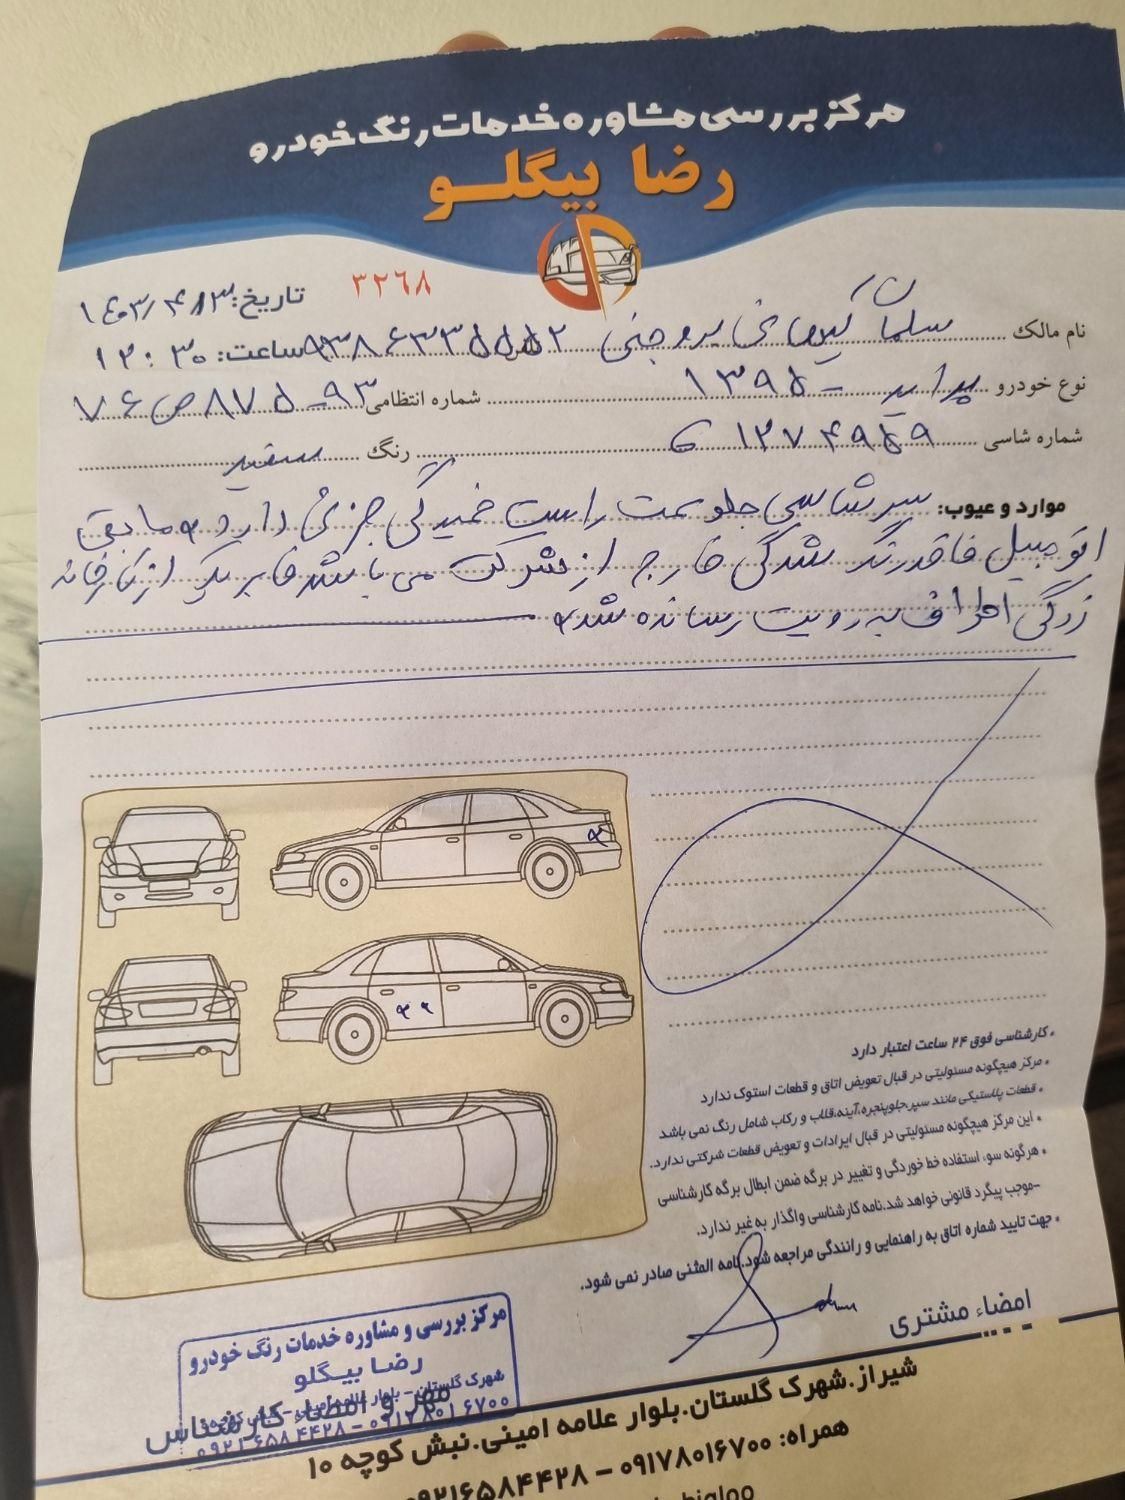 مرکز بررسی مشاوره خدمات رنگ خودرو
رضا بیگلو
۳۲۶۸
تاریخ: ۱۴۰۳/۴/۱۳
نام مالک سلمان بروجنی
ساعت: ۱۲:۳۰
نوع خودرو پراید - ۱۳۹۵ شماره انتظامی ۹۳ - ۸۷۵ ص ۷۶
شماره شاسی رنگ سفید
موارد و عیوب: سر شاسی جلو سمت راست خمیدگی جزئی دارد مابقی
اتومبیل فاقد رنگ شدگی خارج از شرکت می باشد فابریک از کارخانه
زدگی اطراف به رویت رسانده شده
• کارشناسی فوق ۲۴ ساعت اعتبار دارد
• مرکز هیچگونه مسئولیتی در قبال تعویض اتاق و قطعات استوک ندارد
• قطعات پلاستیکی مانند سپر،جلوپنجره،آینه،قالب و رکاب شامل رنگ نمی باشد
• این مرکز هیچگونه مسئولیتی در قبال ایرادات و تعویض قطعات شرکتی ندارد.
• هرگونه سوء استفاده خط خوردگی و تغییر در برگه ضمن ابطال برگه کارشناسی
-موجب پیگرد قانونی خواهد شد.نامه کارشناسی واگذار به غیر ندارد.
• جهت تایید شماره اتاق به راهنمایی و رانندگی مراجعه شود.نامه المثنی صادر نمی شود.
امضاء مشتری
مرکز بررسی و مشاوره خدمات رنگ خودرو
رضا بیگلو
شهرک گلستان - بلوار علامه امینی -
۰۹۲۱۶۵۸۴۴۲۸ - ۰۹۱۷۸۰۱۶۷۰۰
مهر و امضاء کارشناس
شیراز.شهرک گلستان.بلوار علامه امینی.نبش کوچه ۱۰
همراه: ۰۹۱۷۸۰۱۶۷۰۰ - ۰۹۲۱۶۵۸۴۴۲۸
bigloo